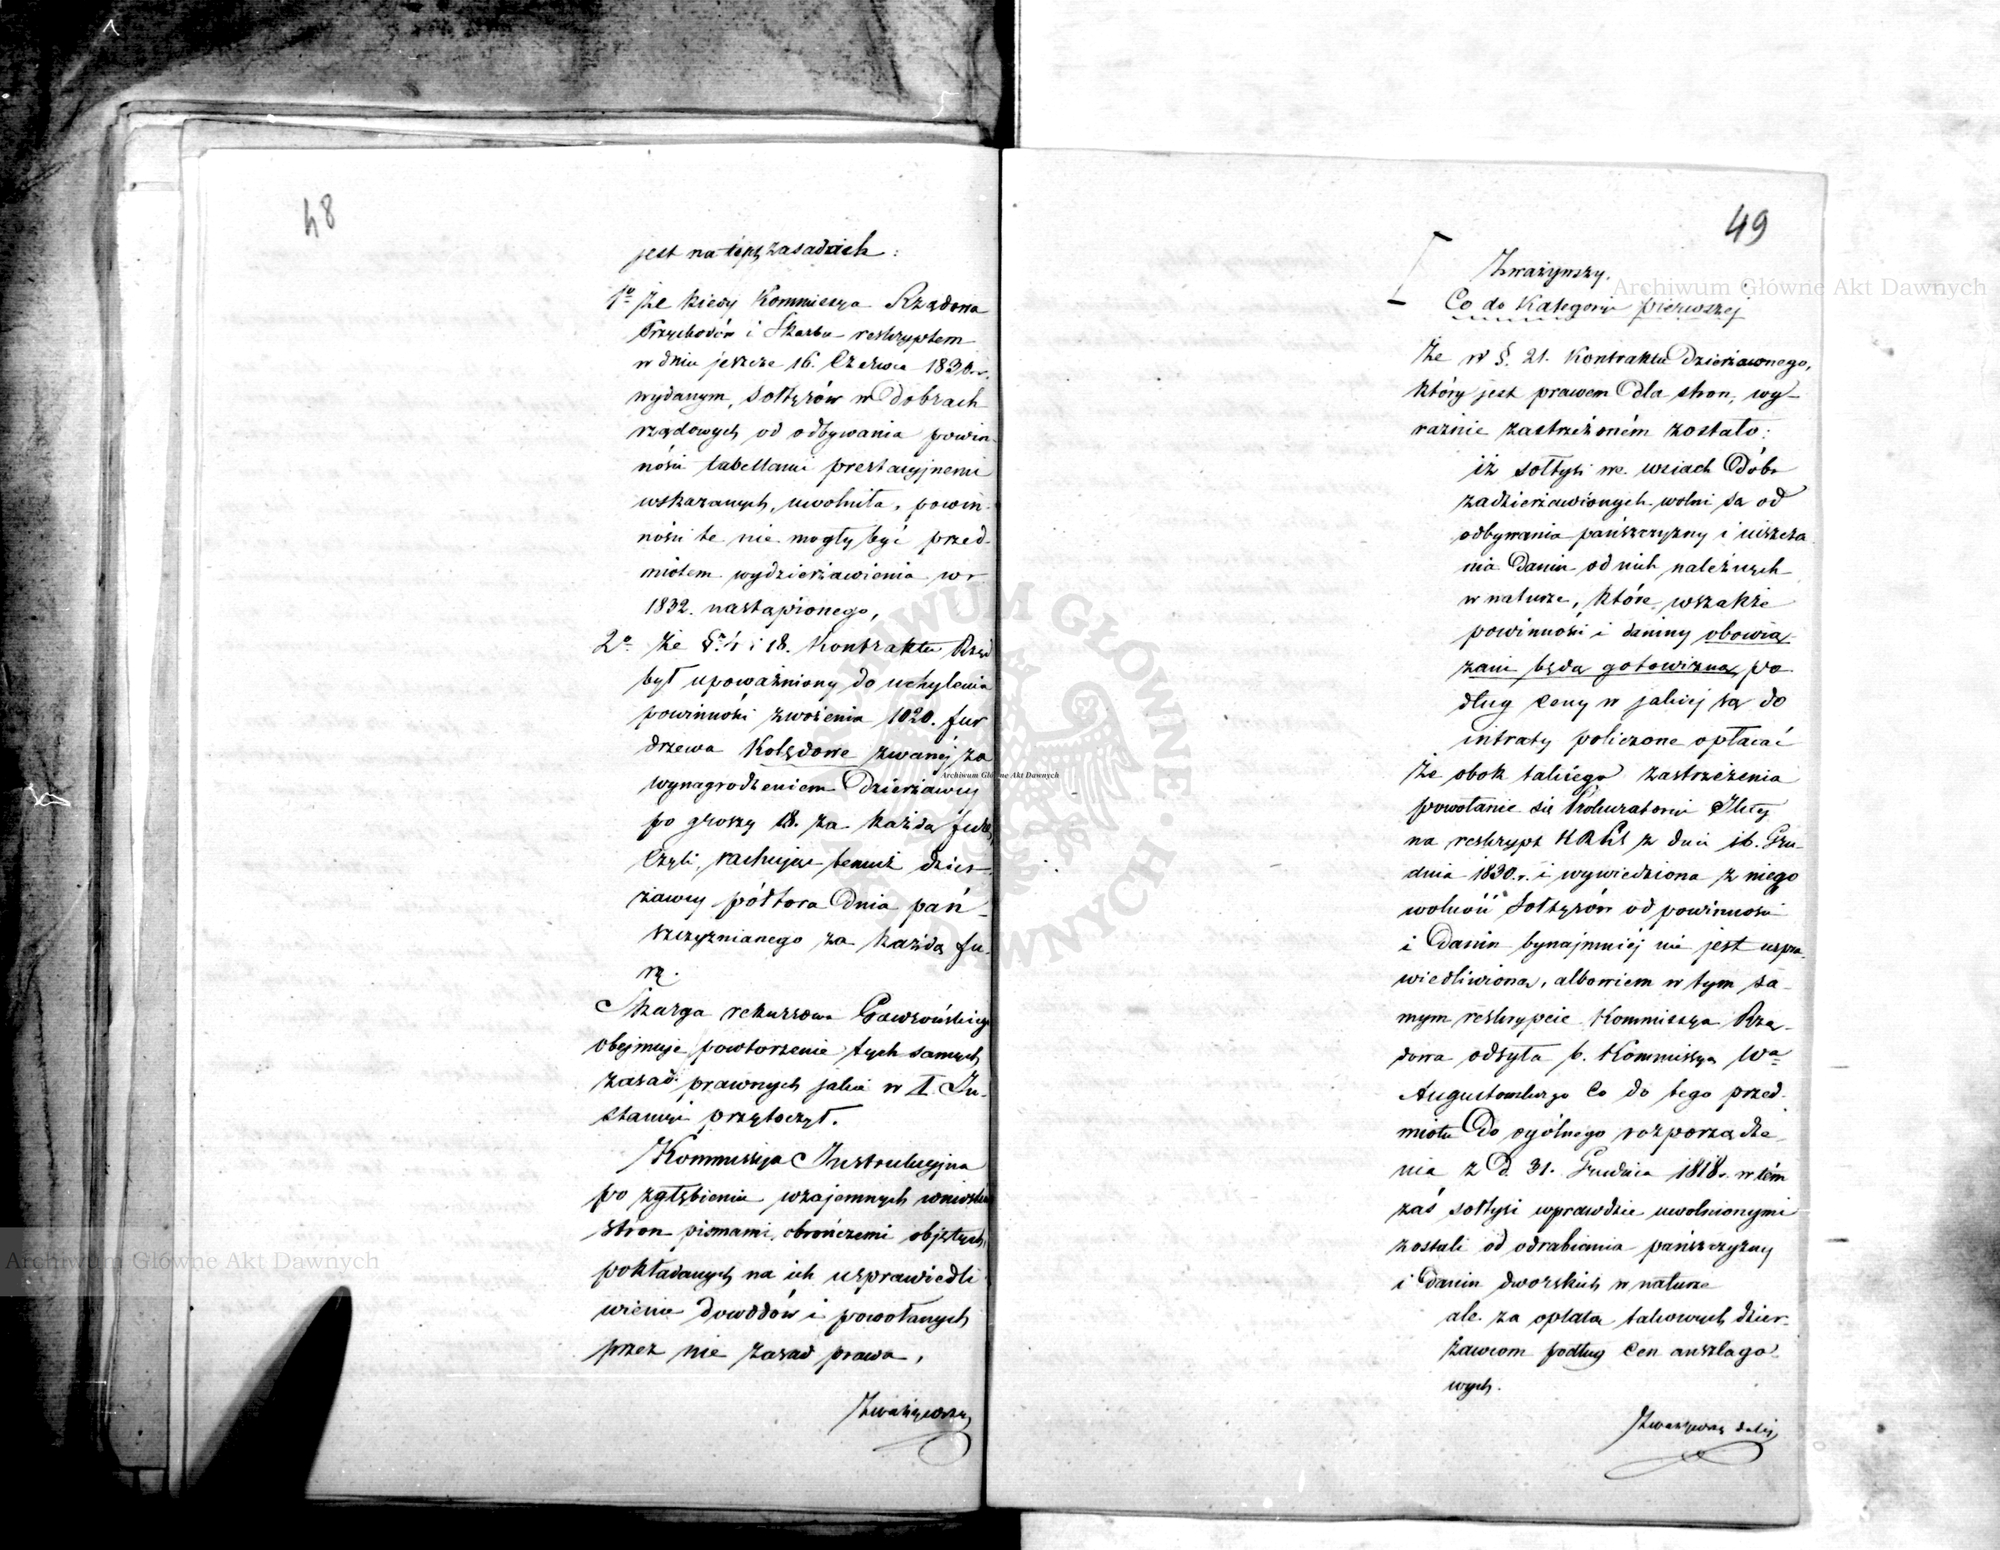 48
jest na tych zasadach:
1o Że kiedy Kommissya Rządowa
Przychodów i Skarbu reskryptem
w dniu jeszcze 16. Czerwca 1830. r.
wydanym, Sołtysów w Dobrach
rządowych od odbywania powin-
ności tabellami prestacyjnemi
wskazanych, uwolniła, powin-
ności te nie mogły być przed-
miotem wydzierżawienia w r
1832. nastąpionego,
2o Że §. 4 i 18. Kontraktu Rząd
był upoważniony do uchylenia
powinności zwożenia 1020. fur
drzewa Kolędowe zwanej za
wynagrodzeniem Dzierżawcy
po groszy 18. za każdą furę,
Czyli, rachując temuż dzier-
żawcy półtora Dnia pań-
szczyznianego za każdą fu-
rę.
Skarga rekursowa
obejmuje powtorzenie tych samych
zasad prawnych jakie w I. In-
stancyi przytoczył.
Kommissya Instrukcyjna
po zgłębieniu wzajemnych wniosków
stron pismami obrończemi objętych,
pokładanych na ich usprawiedli-
wienie Dowodów i powołanych
przez nie zasad prawa,
Zważywszy
49
Zważywszy.
Co do Kategoryi pierwszej
Że w §. 21. Kontraktu Dzierżawnego,
który jest prawem dla stron, wy-
raźnie zastrzeżonem zostało:
iż sołtysi we wsiach Dóbr
zadzierżawionych wolni są od
odbywania pańszczyzny i uiszcza
nia Danin od nich należnych
w naturze, które wszakże
powinności i daniny obowią-
zani będą gotowizną po
dług Ceny w jakiej są do
intraty policzone opłacać
Że obok takiego zastrzeżenia
powołanie się Prokuratorii
na reskrypt KRPiS z dnia 16. Gru-
dnia 1830. r. i wywiedziona z niego
wolność Sołtysów od powinności
i Danin bynajmniej nie jest uspra-
wiedliwioną, albowiem w tym sa-
mym reskrypcie Kommissya Rzą-
dowa odsyła b. Kommissyą Wa
Augustowskiego Co do tego przed-
miotu Do ogólnego rozporządze-
nia z D. 31. Grudnia 1818 r. w tém
zaś sołtysi wprawdzie uwolnionymi
zostali od odrabiania pańszczyzny
i Danin dworskich w naturze
ale za opłatą takowych dzier-
żawcom podług Cen anszlago-
wych.
Zważywszy dalej,
Archiwum Główne Akt Dawnych
Archiwum Główne Akt Dawnych
Archiwum Główne Akt Dawnych
ARCHIWUM GŁÓWNE AKT DAWNYCH